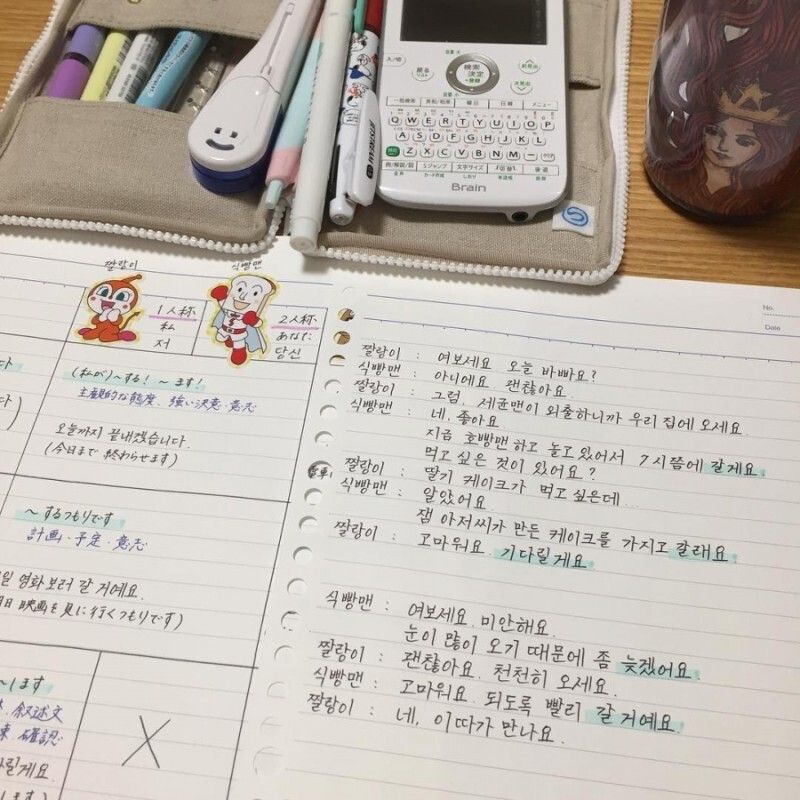 入/切
戻る
検索
決定
前見出
次見出
一括検索
英和/和英
韓日
日韓
メニュー
Q W E R T Y U I O P
A S D F G H J K L
Z X C V B N M -
例/解説/図
Sジャンプ
文字サイズ
切替
後退
Brain
JETSTREAM
No.
Date
짤랑이
식빵맨
1人称
私
저
2人称
あなた
당신
(私が)〜する！〜ます！
主観的な態度、強い決意・意志
오늘까지 끝내겠습니다.
(今日まで 終わらせます)
〜するつもりです
計画・予定・意志
일 영화 보러 갈 거예요.
日 映画を見に行くつもりです)
〜します
叙述文
確認
릴게요.
します)
짤랑이 : 여보세요 오늘 바빠요?
식빵맨 : 아니에요 괜찮아요
짤랑이 : 그럼, 세균맨이 외출하니까 우리 집에 오세요
식빵맨 : 네, 좋아요
지금 호빵맨하고 놀고 있어서 7시쯤에 갈게요.
먹고 싶은 것이 있어요?
짤랑이 : 딸기 케이크가 먹고 싶은데...
식빵맨 : 알았어요
잼 아저씨가 만든 케이크를 가지고 갈래요
짤랑이 : 고마워요. 기다릴게요
식빵맨 : 여보세요. 미안해요.
눈이 많이 오기 때문에 좀 늦겠어요.
짤랑이 : 괜찮아요. 천천히 오세요.
식빵맨 : 고마워요. 되도록 빨리 갈 거예요.
짤랑이 : 네, 이따가 만나요.